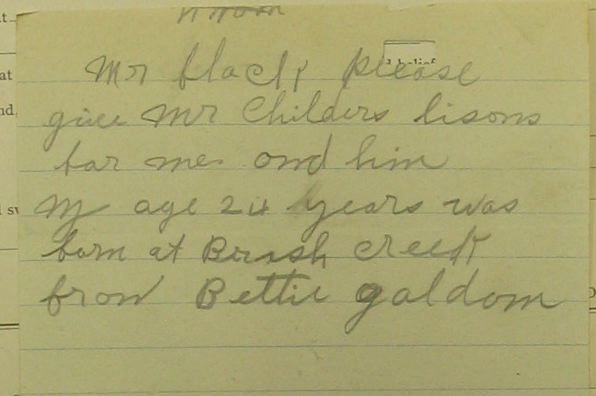 Mr flack please
give Mr Childers lisons
for me ond him
My age 24 years was
born at Brush creek
from Bettie galdom